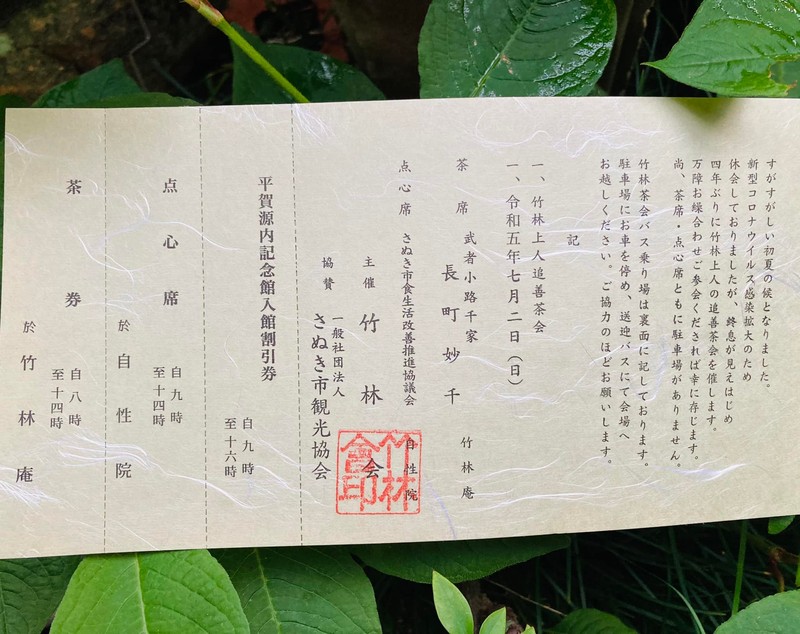 すがすがしい初夏の候となりました。
新型コロナウイルス感染拡大のため
休会しておりましたが、終息が見えはじめ
四年ぶりに竹林上人の追善茶会を催します。
万障お繰合わせご参会くだされば幸に存じます。
尚、茶席・点心席ともに駐車場がありません。
竹林茶会バス乗り場は裏面に記しております。
駐車場にお車を停め、送迎バスにて会場へ
お越しください。ご協力のほどお願いします。
記
一、竹林上人追善茶会
一、令和五年七月二日（日）
茶席 武者小路千家
長町妙千 竹林庵
点心席 さぬき市食生活改善推進協議会 自性院
主催 竹林会
竹林會印
協賛 一般社団法人
さぬき市観光協会
平賀源内記念館入館割引券
自九時
至十六時
点心席
自九時
至十四時
於自性院
茶券
自八時
至十四時
於竹林庵